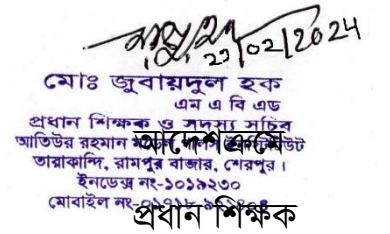 22/02/2024
মোঃ জুবায়দুল হক
এম এ বি এড
প্রধান শিক্ষক ও সদস্য সচিব
আদেশক্রমে
আতিউর রহমান
তারাকান্দি, রামপুর বাজার, শেরপুর।
ইনডেক্স নং-১০১৯২৩০
মোবাইল নং-
প্রধান শিক্ষক